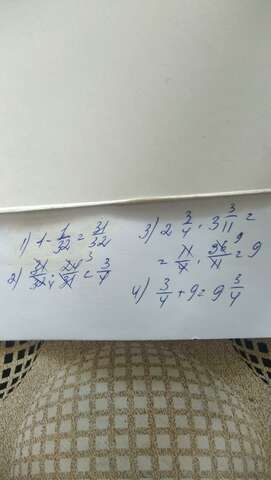 1) 1 - 1/32 = 31/32
2) 31/32 · 24/31 = 3/4
3) 2 3/4 · 3 3/11 =
= 11/4 · 36/11 = 9
4) 3/4 + 9 = 9 3/4